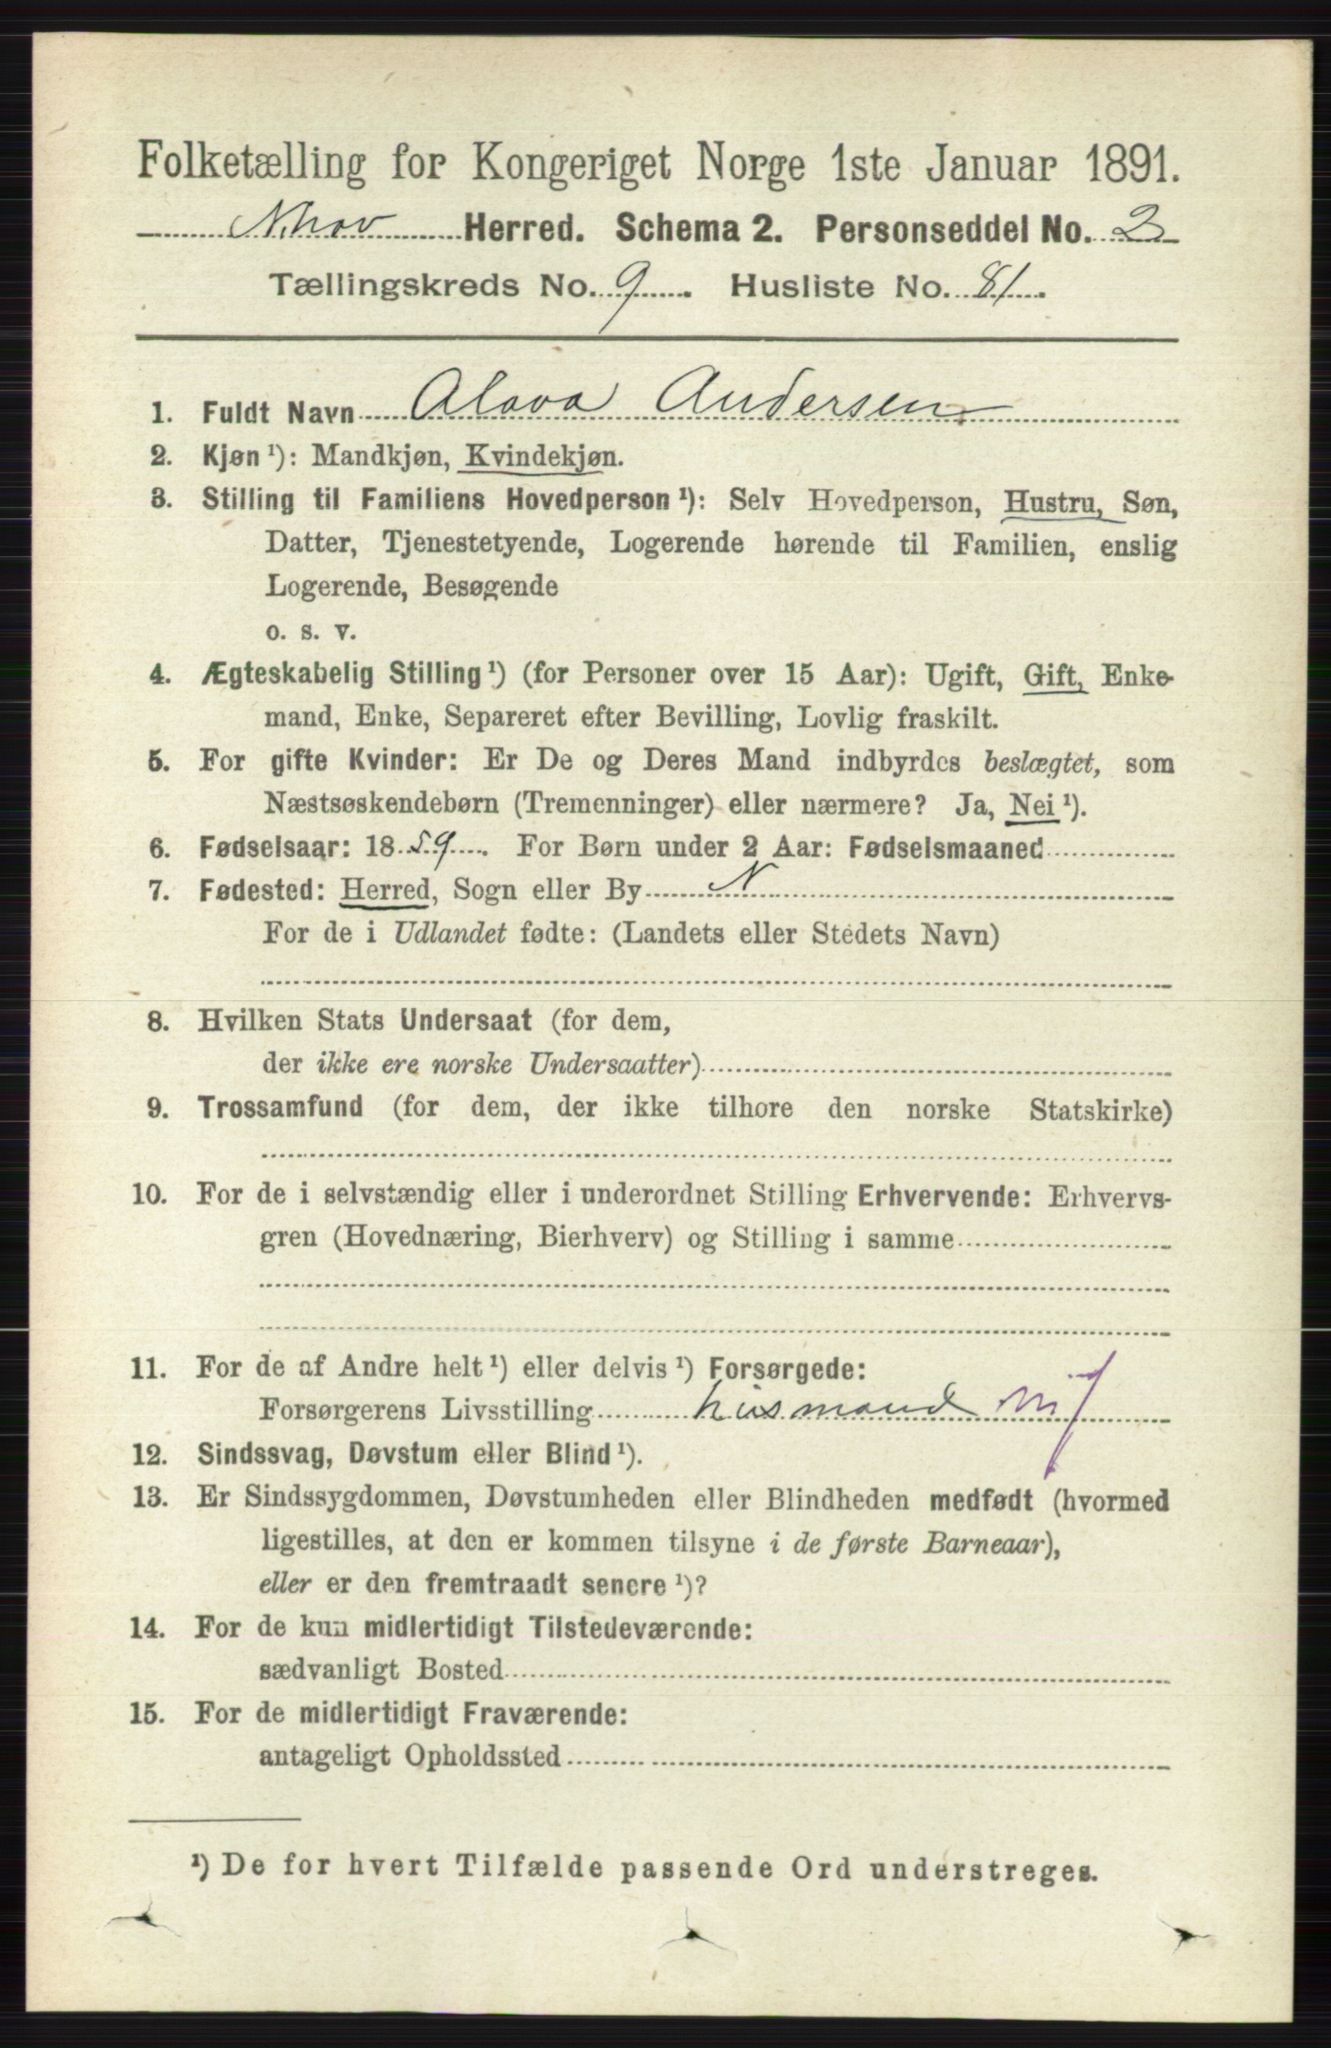 Folketælling for Kongeriget Norge 1ste Januar 1891.
Nhov Herred. Schema 2. Personseddel No. 2
Tællingskreds No. 9. Husliste No. 81.
1. Fuldt Navn Alova Andersen
2. Kjøn ¹): Mandkjøn, Kvindekjøn.
3. Stilling til Familiens Hovedperson ¹): Selv Hovedperson, Hustru, Søn,
Datter, Tjenestetyende, Logerende hørende til Familien, enslig
Logerende, Besøgende
o. s. v.
4. Ægteskabelig Stilling ¹) (for Personer over 15 Aar): Ugift, Gift, Enke-
mand, Enke, Separeret efter Bevilling, Lovlig fraskilt.
5. For gifte Kvinder: Er De og Deres Mand indbyrdes beslægtet, som
Næstsøskendebørn (Tremenninger) eller nærmere? Ja, Nei ¹).
6. Fødselsaar: 1859. For Børn under 2 Aar: Fødselsmaaned
7. Fødested: Herred, Sogn eller By N
For de i Udlandet fødte: (Landets eller Stedets Navn)
8. Hvilken Stats Undersaat (for dem,
der ikke ere norske Undersaatter)
9. Trossamfund (for dem, der ikke tilhøre den norske Statskirke)
10. For de i selvstændig eller i underordnet Stilling Erhvervende: Erhvervs-
gren (Hovednæring, Bierhverv) og Stilling i samme
11. For de af Andre helt ¹) eller delvis ¹) Forsørgede:
Forsørgerens Livsstilling husmand
12. Sindssvag, Døvstum eller Blind ¹).
13. Er Sindssygdommen, Døvstumheden eller Blindheden medfødt (hvormed
ligestilles, at den er kommen tilsyne i de første Barneaar),
eller er den fremtraadt senere ¹)?
14. For de kun midlertidigt Tilstedeværende:
sædvanligt Bosted
15. For de midlertidigt Fraværende:
antageligt Opholdssted
¹) De for hvert Tilfælde passende Ord understreges.